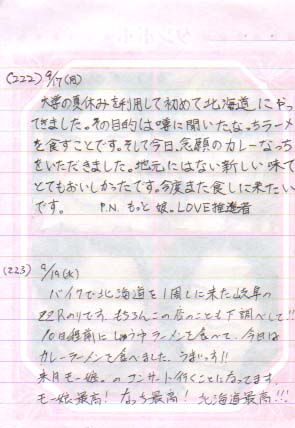 (222) 9/17(月)
大学の夏休みを利用して初めて北海道にやっ
てきました。その目的は噂に聞いたなっちラーメ
を食すことです。そして今日、念願のカレーなっち
をいただきました。地元にはない新しい味で
とてもおいしかったです。今度また食しに来たい
です。 P.N. もっと娘。LOVE推進者
(223) 9/19(水)
バイクで北海道を1周しに来た岐阜の
ZZRのりです。もちろんこの店のことも下調べして!!
10日程前にしょうゆラーメンを食べて、今日は
カレーラーメンを食べました。うまいっす!!
来月モー娘。のコンサート行くことになってます。
モー娘最高! なっち最高! 北海道最高!!!